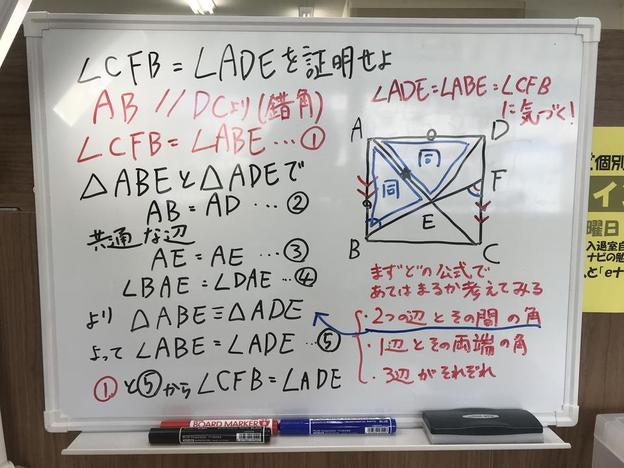 ∠CFB = ∠ADEを証明せよ
AB // DCより(錯角)
∠CFB = ∠ABE … ①
△ABEと△ADEで
AB = AD … ②
共通な辺
AE = AE … ③
∠BAE = ∠DAE … ④
より △ABE≡△ADE
よって ∠ABE = ∠ADE … ⑤
①と⑤から ∠CFB = ∠ADE
∠ADE = ∠ABE = ∠CFB
に気づく!
A
D
同
同
F
E
B
C
まずどの公式で
あてはまるか考えてみる
・2つの辺とその間の角
・1辺とその両端の角
・3辺がそれぞれ
BOARD MARKER
個別
イン
曜日
入退室
ナビの勉
と「eナ